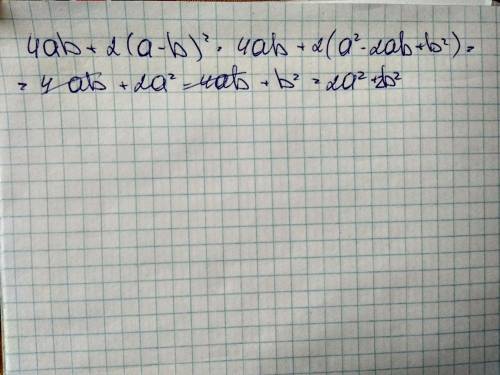 4ab + 2(a-b)² = 4ab + 2(a² - 2ab + b²) =
= 4ab + 2a² - 4ab + b² = 2a² + 2b²